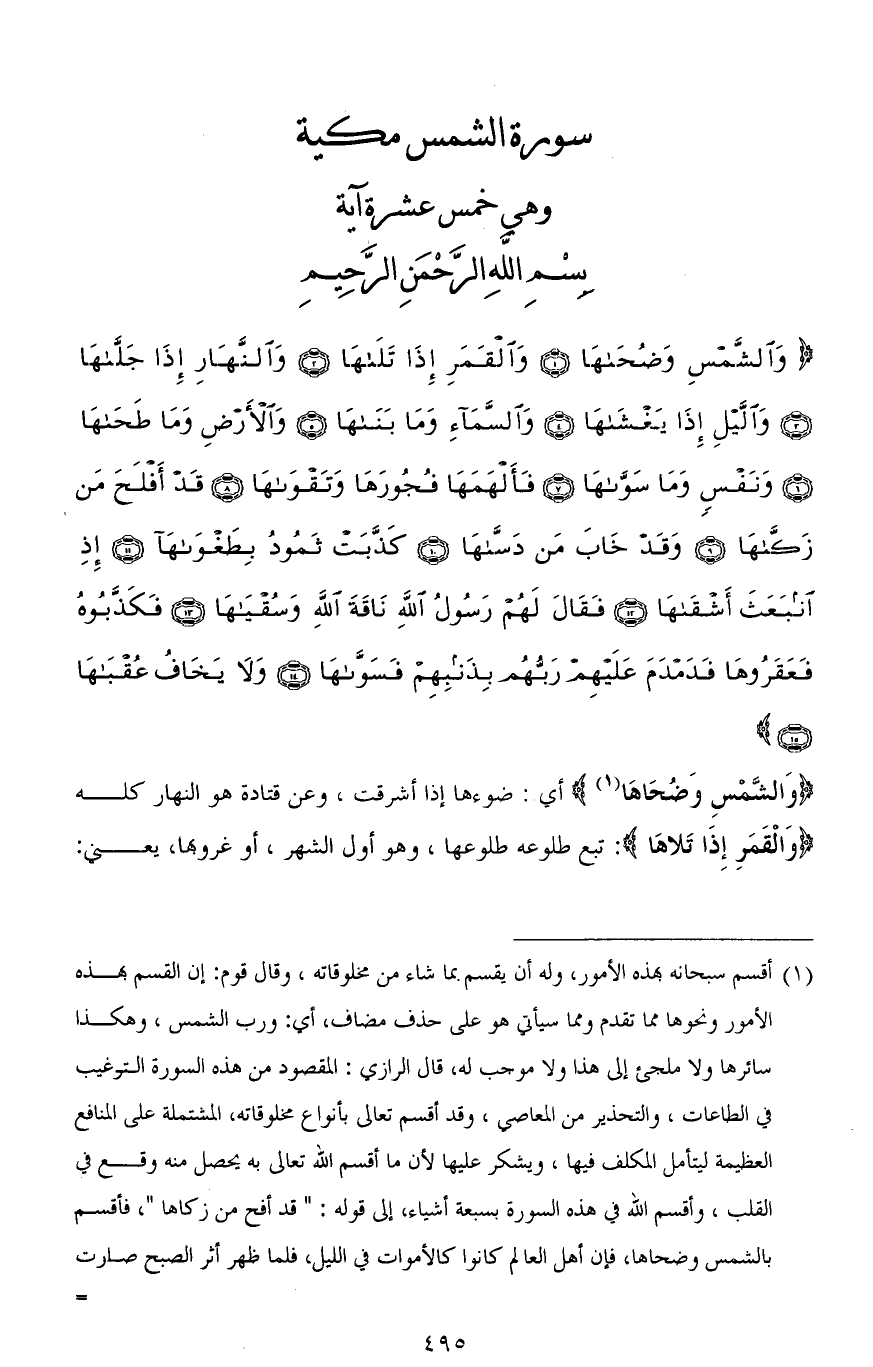 سورة الشمس مكية
وهي خمس عشرة آية
بِسْمِ اللَّهِ الرَّحْمَنِ الرَّحِيمِ
﴿ وَٱلشَّمْسِ وَضُحَىٰهَا ۝١ وَٱلْقَمَرِ إِذَا تَلَىٰهَا ۝٢ وَٱلنَّهَارِ إِذَا جَلَّىٰهَا
۝٣ وَٱلَّيْلِ إِذَا يَغْشَىٰهَا ۝٤ وَٱلسَّمَآءِ وَمَا بَنَىٰهَا ۝٥ وَٱلْأَرْضِ وَمَا طَحَىٰهَا
۝٦ وَنَفْسٍ وَمَا سَوَّىٰهَا ۝٧ فَأَلْهَمَهَا فُجُورَهَا وَتَقْوَىٰهَا ۝٨ قَدْ أَفْلَحَ مَن
زَكَّىٰهَا ۝٩ وَقَدْ خَابَ مَن دَسَّىٰهَا ۝١٠ كَذَّبَتْ ثَمُودُ بِطَغْوَىٰهَآ ۝١١ إِذِ
ٱنۢبَعَثَ أَشْقَىٰهَا ۝١٢ فَقَالَ لَهُمْ رَسُولُ ٱللَّهِ نَاقَةَ ٱللَّهِ وَسُقْيَـٰهَا ۝١٣ فَكَذَّبُوهُ
فَعَقَرُوهَا فَدَمْدَمَ عَلَيْهِمْ رَبُّهُم بِذَنۢبِهِمْ فَسَوَّىٰهَا ۝١٤ وَلَا يَخَافُ عُقْبَـٰهَا
۝١٥ ﴾
﴿وَالشَّمْسِ وَضُحَاهَا(١) ﴾ أي : ضوءها إذا أشرقت ، وعن قتادة هو النهار كلـــــه
﴿وَالْقَمَرِ إِذَا تَلاهَا ﴾: تبع طلوعه طلوعها ، وهو أول الشهر ، أو غروبها، يعـــــني:
(١) أقسم سبحانه بهذه الأمور، وله أن يقسم بما شاء من مخلوقاته ، وقال قوم: إن القسم بهـــذه
الأمور ونحوها مما تقدم ومما سيأتي هو على حذف مضاف، أي: ورب الشمس ، وهكـــذا
سائرها ولا ملجئ إلى هذا ولا موجب له، قال الرازي : المقصود من هذه السورة التوغيب
في الطاعات ، والتحذير من المعاصي ، وقد أقسم تعالى بأنواع مخلوقاته، المشتملة على المنافع
العظيمة ليتأمل المكلف فيها ، ويشكر عليها لأن ما أقسم الله تعالى به يحصل منه وقـــع في
القلب ، وأقسم الله في هذه السورة بسبعة أشياء، إلى قوله : " قد أفح من زكاها "، فأقســم
بالشمس وضحاها، فإن أهل العالم كانوا كالأموات في الليل، فلما ظهر أثر الصبح صـارت
=
٤٩٥